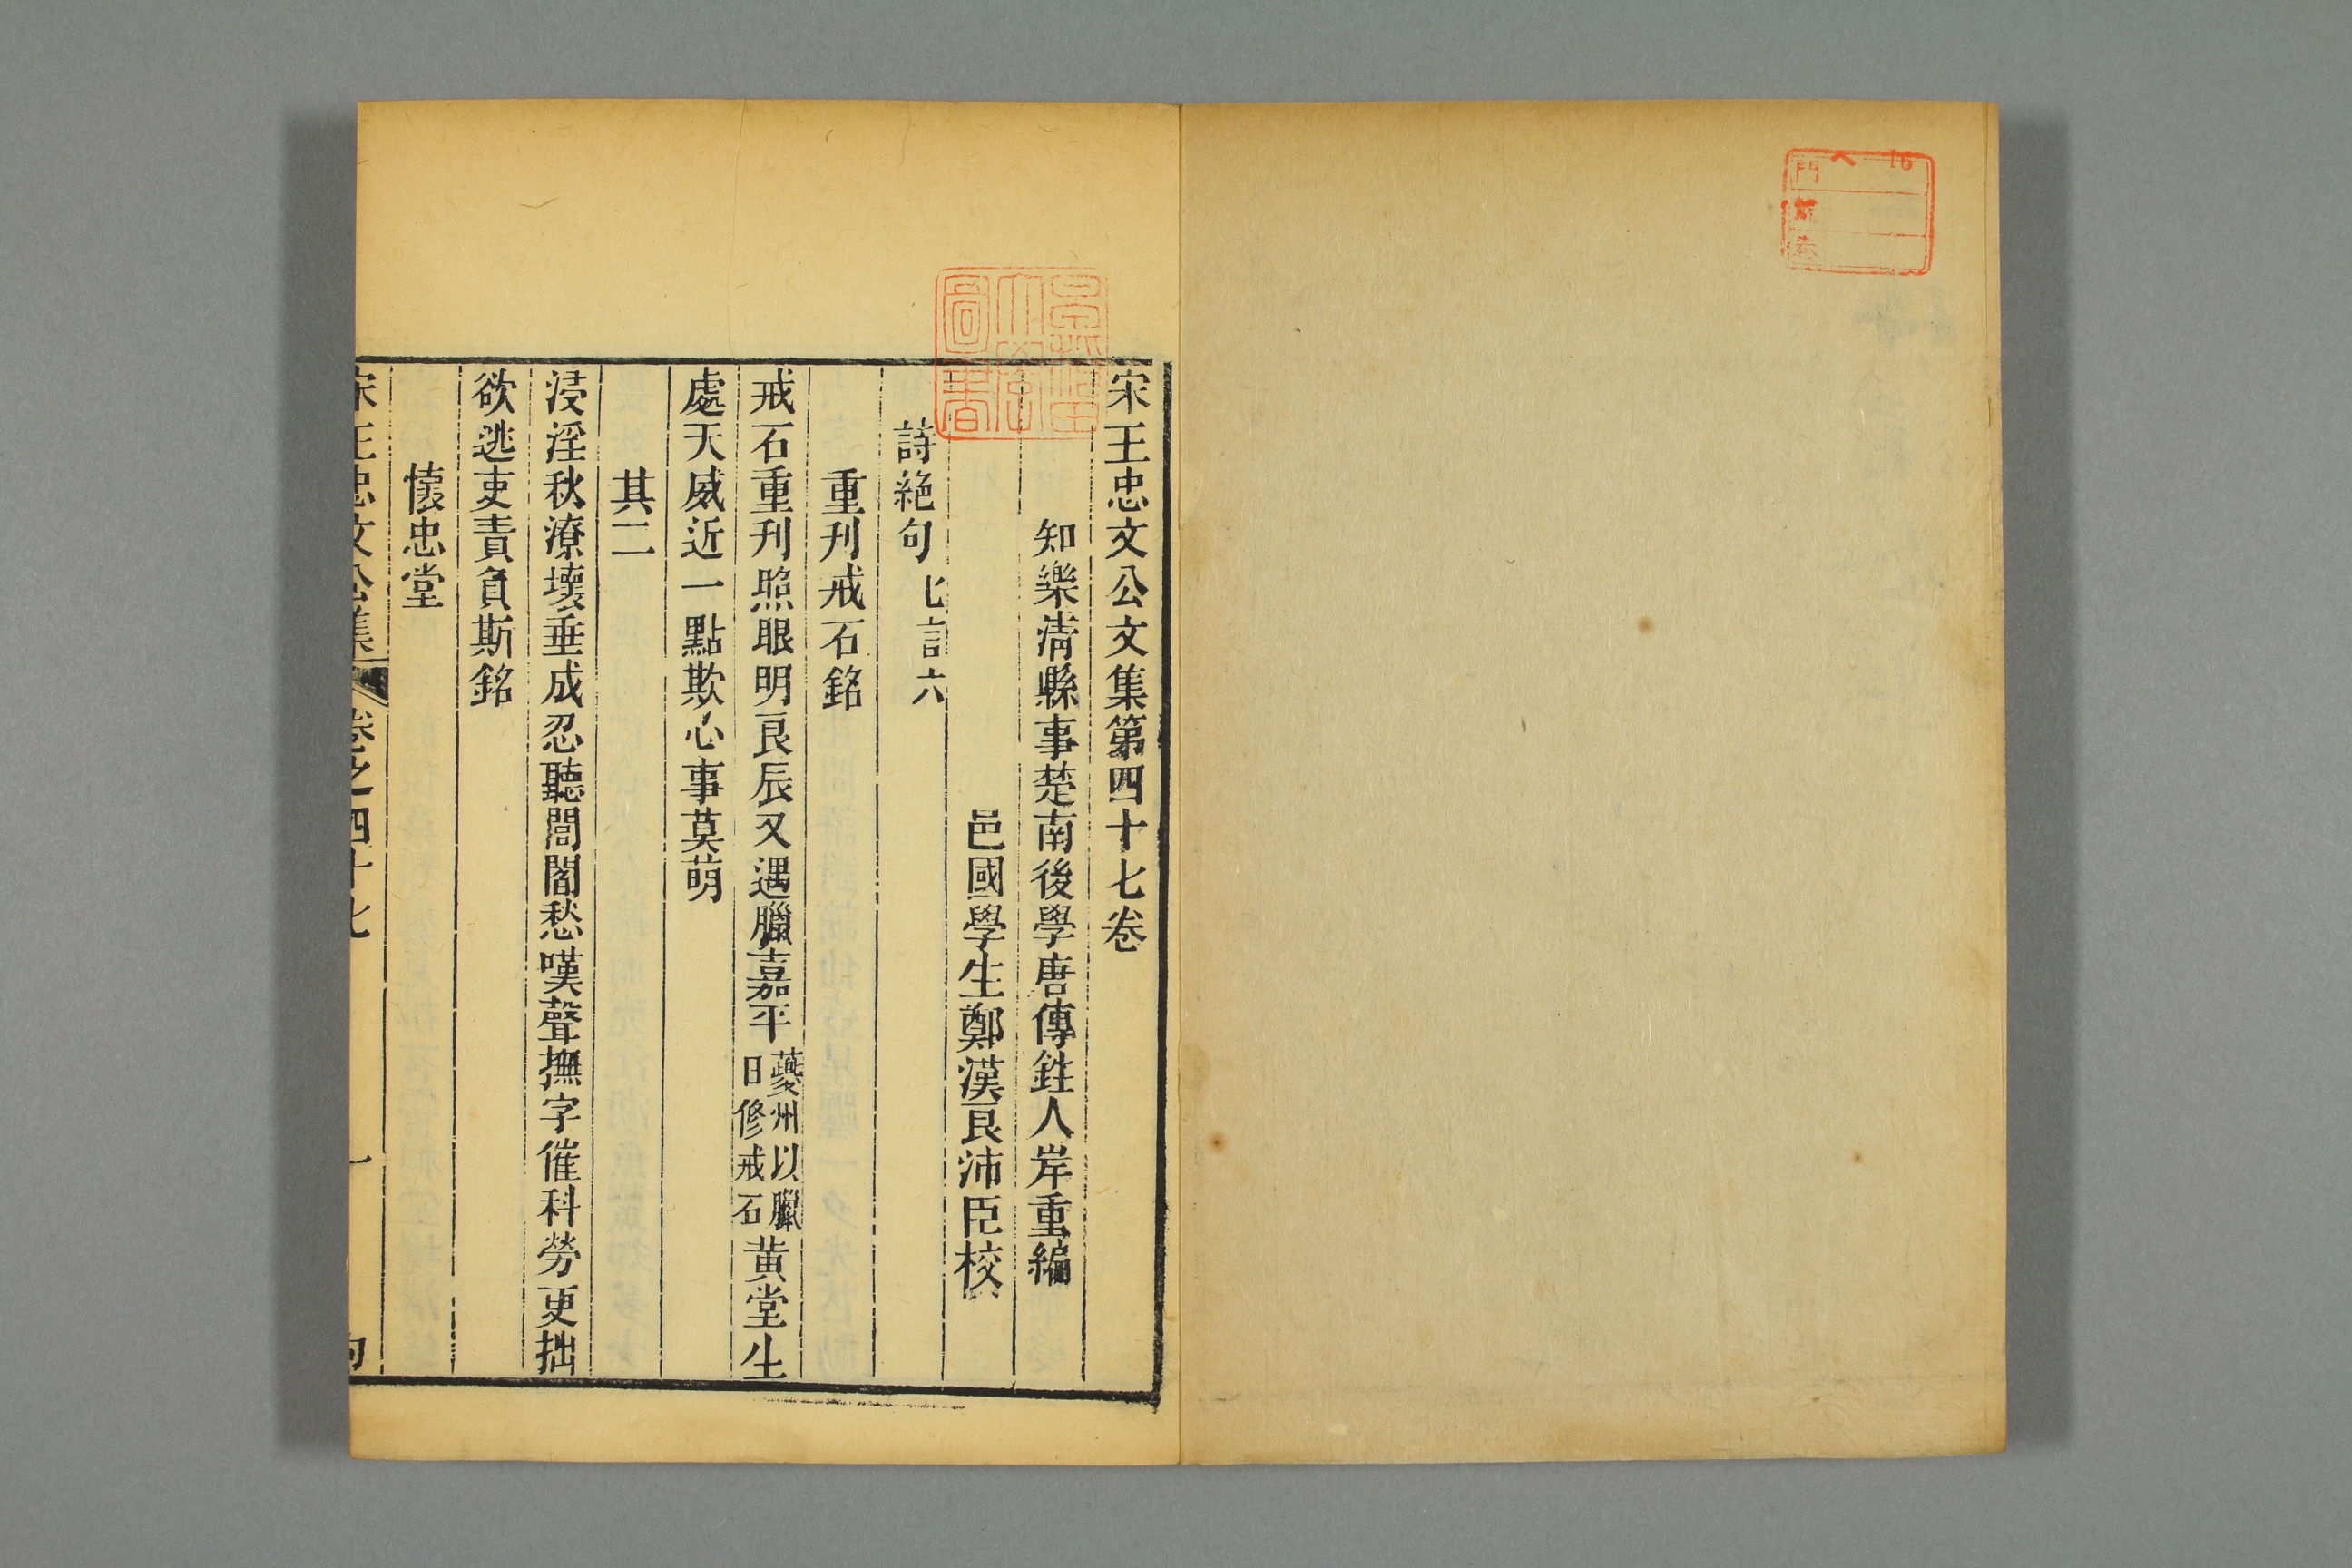 宋王忠文公文集第四十七卷
知樂清縣事楚南後學唐傳鉎人岸重編
邑國學生鄭漢良沛臣校
詩絕句七言六
重刋戒石銘
戒石重刋照眼明良辰又遇臘嘉平夔州以臘日修戒石黃堂生
處天威近一點欺心事莫萌
其二
浸淫秋潦壞垂成忍聽閭閻愁嘆聲撫字催科勞更拙
欲逃吏責負斯銘
懷忠堂
宋王忠文公集 卷之四十七 一
門
16